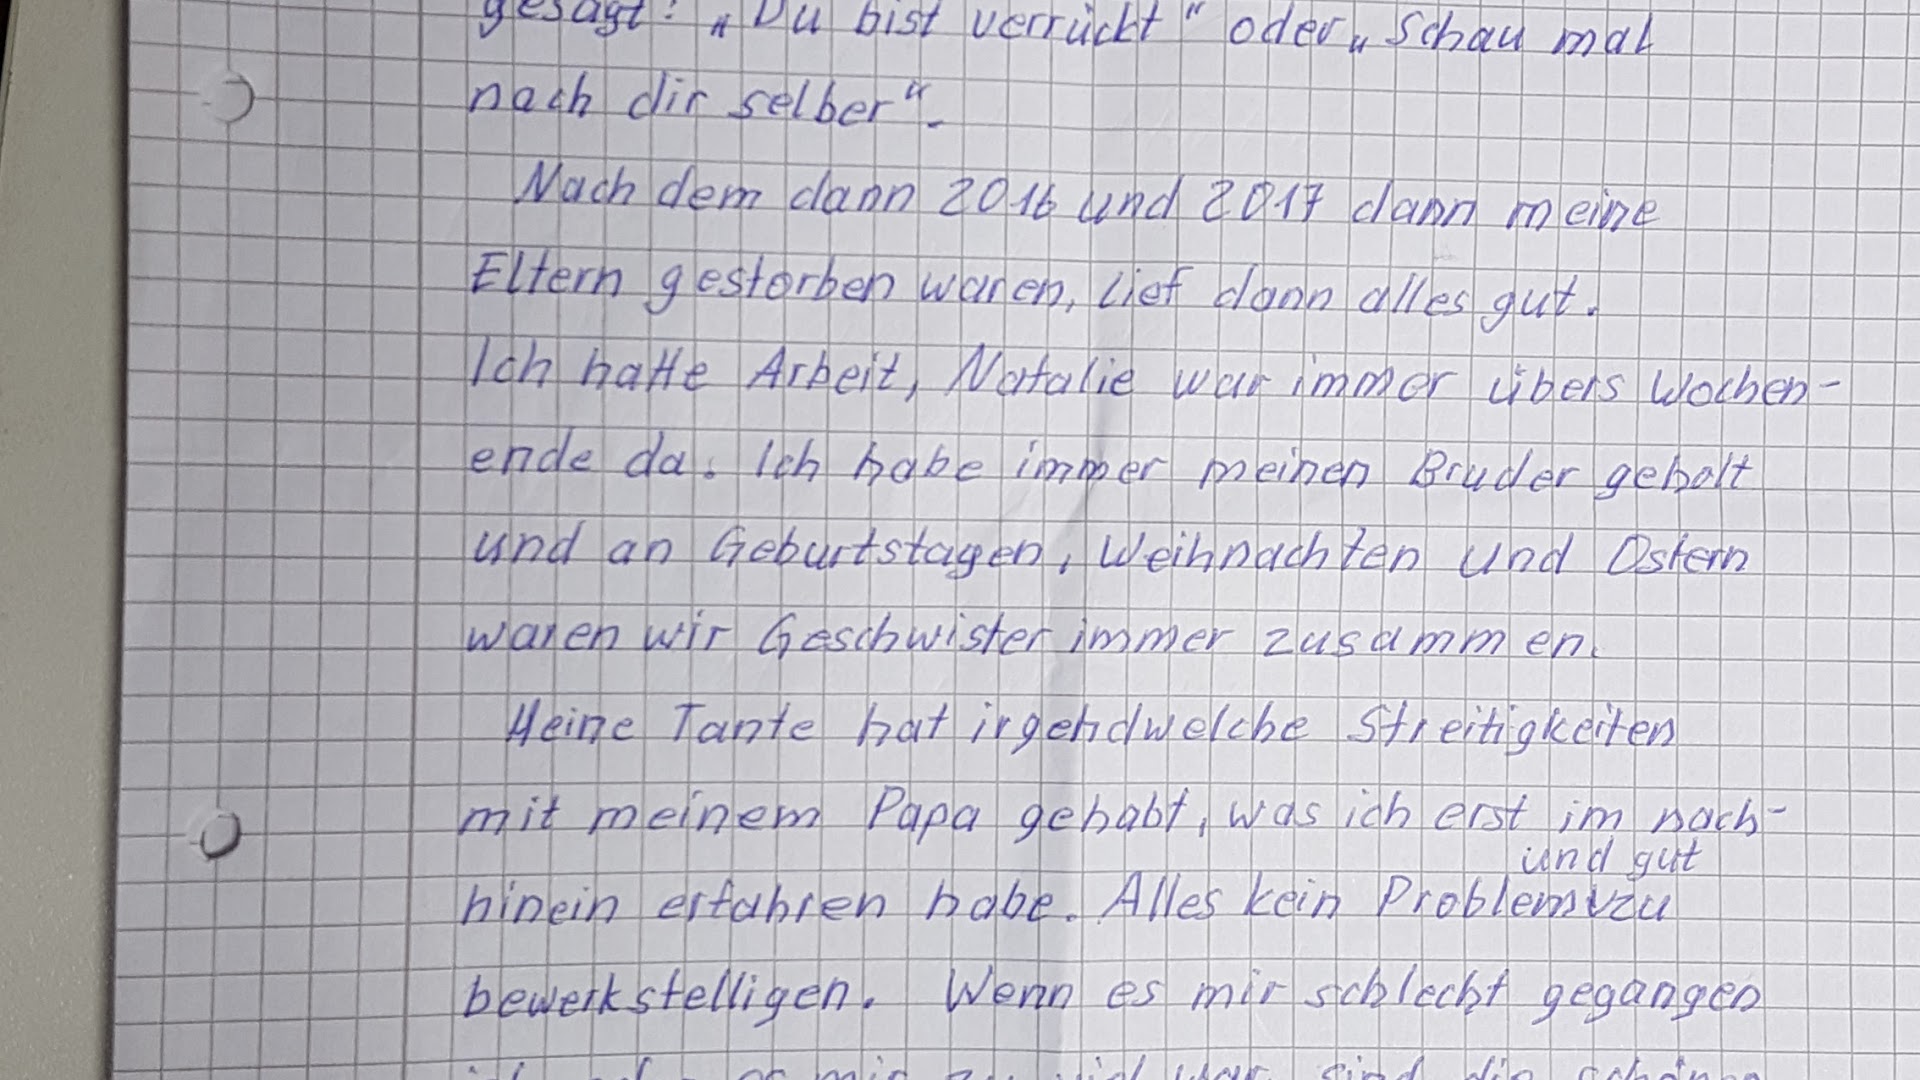 gesagt: „Du bist verrückt" oder „Schau mal
nach dir selber".
Nach dem dann 2016 und 2017 dann meine
Eltern gestorben waren, lief dann alles gut.
Ich hatte Arbeit, Natalie war immer übers Wochen-
ende da. Ich habe immer meinen Bruder geholt
und an Geburtstagen, Weihnachten und Ostern
waren wir Geschwister immer zusammen.
Meine Tante hat irgendwelche Streitigkeiten
mit meinem Papa gehabt, was ich erst im nach-
und gut
hinein erfahren habe. Alles kein Problem zu
bewerkstelligen. Wenn es mir schlecht gegangen